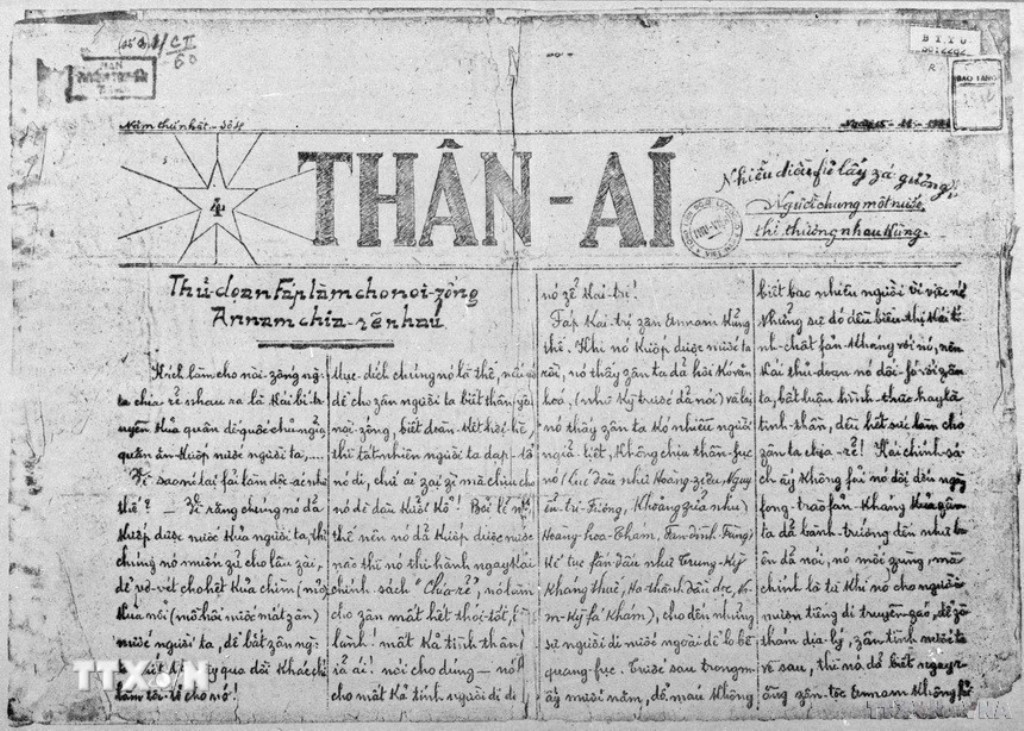 Năm thứ nhất - Số 4
THÂN-ÁI
4
Nhiễu điều fủ lấy zá gương,
Người chung một nước,
thì thương nhau kùng.
BẢO TÀNG
Thủ-đoạn Fáp làm cho nòi-zống
Annam chia-rẽ nhau
Kích làm cho nòi-zống ng-
ta chia rẽ nhau ra là kái bí-k-
quyền kủa quân đế-quốc chủ-ngĩa
quân ăn-kướp nước người ta,....
Vì sao nó lại fải làm độc-ác như
thế? _ Vì rằng chúng nó đã
kướp được nước kủa người ta, thì
chúng nó muốn zữ cho lâu zài,
để vơ-vét cho hết kủa chìm, 
kủa nổi (mồ hôi nước mắt zân)
nước người ta, để bắt zân ng-
qua đời khác chỉ
làm tôi-tớ cho nó!
Mục-đích chúng nó là thế, nếu
để cho zân người ta biết thân-yêu
nòi-zống, biết đoàn-kết
thì tất-nhiên người ta đạp-đổ
nó đi, chứ ai zại zì mà chịu cho
nó đè đầu kưỡi kổ! Bởi lẽ
thế nên nó đã kướp được nước
nào thì nó thi hành ngay kái
chính-sách "Chia-rẽ", nó làm
cho zân mất hết
lành! mất kả tinh thần
ái! nói cho đúng _ nó
cho mất kả tính người đi để
nó zễ kai-trị!
Fáp kai-trị zân Annam kũng
thế. Khi nó kướp được nước ta
rồi, nó thấy zân ta đã 
hoá, (như kỳ trước đã nói) và lại
nó thấy zân ta kó nhiều người
ngĩa-liệt, không chịu thần-fục
nó (lúc đầu như Hoàng-ziệu, Nguy-
ễn-tri-Fương, khoảng zữa như
Hoàng-hoa-Thám, Fan-đình-Fùng)
kế tục fấn-đấu như Trung-kỳ
kháng thuế, Hà-thành đầu độc,
kỳ fá khám), cho đến những
sự người đi nước ngoài để lo bề
quang-fục. Trước sau trong m-
ấy mươi năm, đổ máu không
biết bao nhiêu người vì việc
Những sự đó đều biểu-thị kái tí-
nh-chất fản-kháng với nó, nên
kái thủ-đoạn nó đối-fó với zân
ta, bất luận hình-thức hay là
tinh-thần, đều hết sức làm cho
zân ta chia-rẽ! Kái chính-sá-
ch ấy không fải nó đợi đến ngày
fong-trào fản-kháng kủa zân
ta đã bành-trướng đến như
đã nói, nó mới zùng, mà
chính là từ khi nó cho người
mượn tiếng đi truyền-záo, để zò
thám địa-lý, zân tình nước ta
về sau, thì nó đã biết ngay r-
ằng zân-tộc Annam không
TTXVN